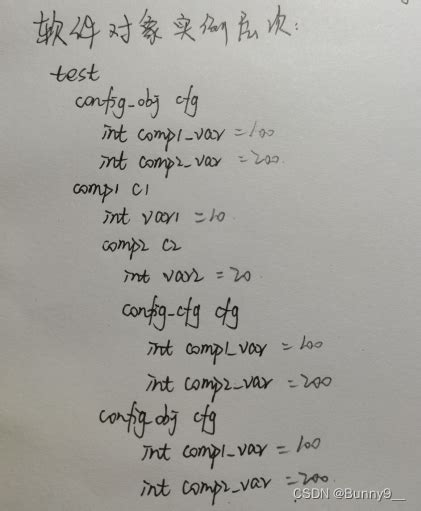 软件对象实例层次:
test
config_obj cfg
int comp1_var =100
int comp2_var =200
comp1 C1
int var1 =10
comp2 C2
int var2 =20
config_cfg cfg
int comp1_var =100
int comp2_var =200
config_obj cfg
int comp1_var =100
int comp2_var =200
CSDN @Bunny9__